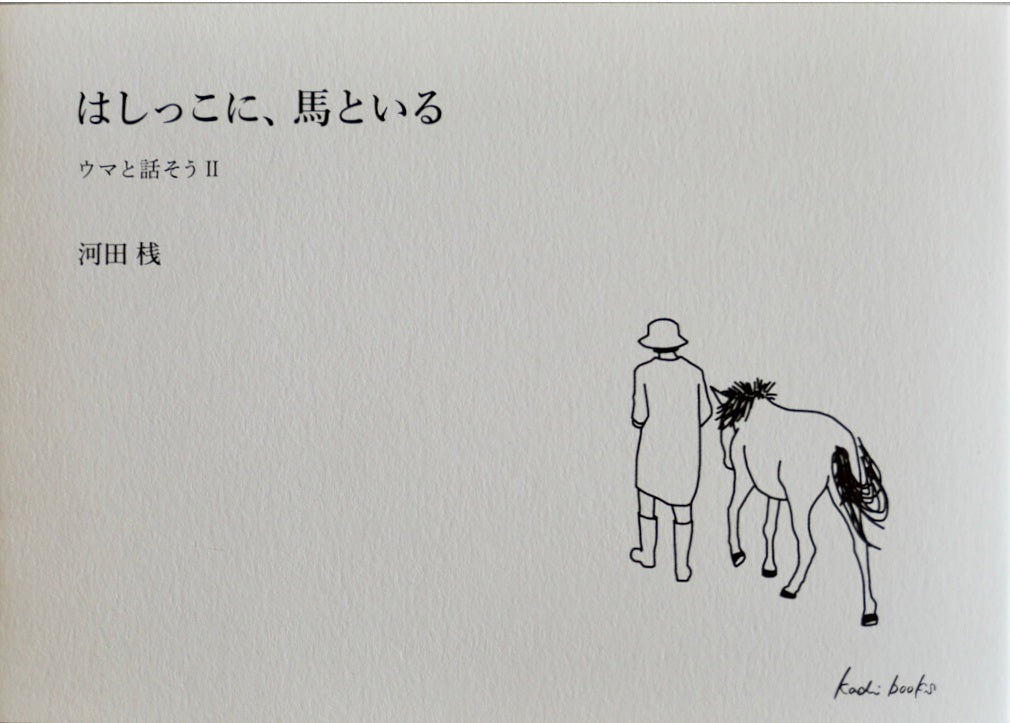 はしっこに、馬といる
ウマと話そうⅡ
河田 桟
kadi books